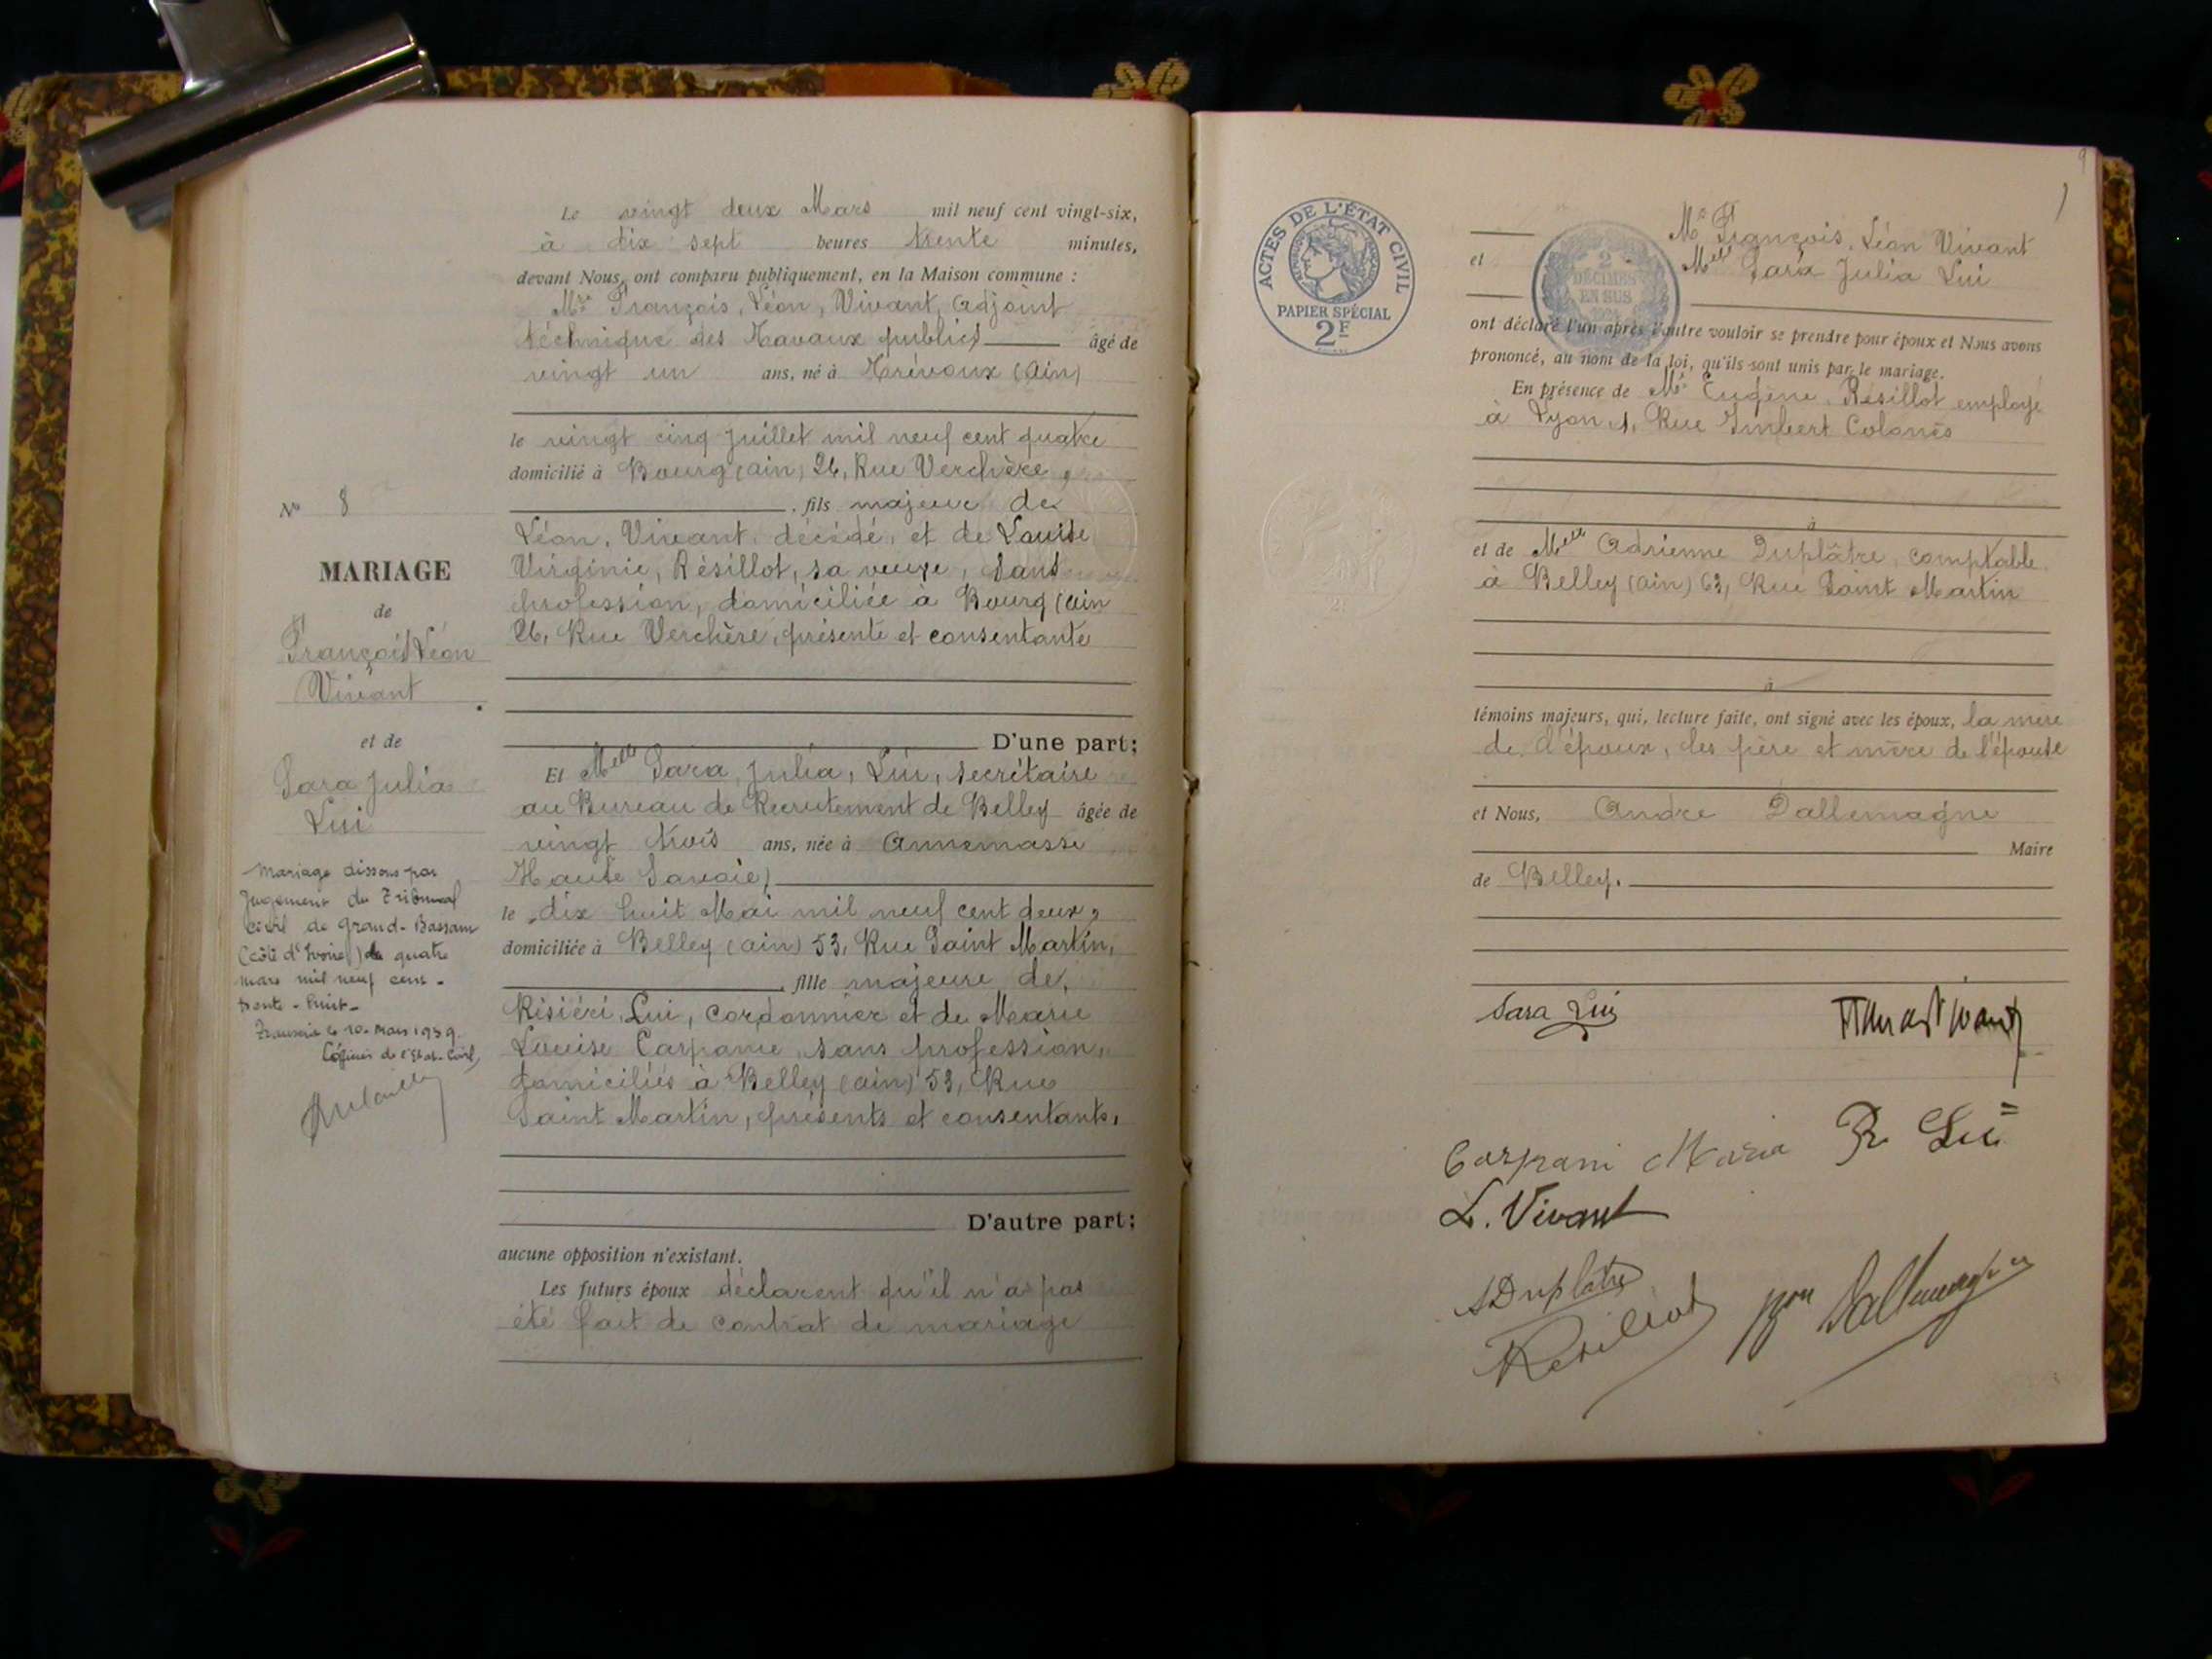 Le vingt deux Mars mil neuf cent vingt-six,
à dix sept heures trente minutes,
devant Nous, ont comparu publiquement, en la Maison commune :
Mr François, Léon, Vivant, adjoint
téchnique des Travaux publics âgé de
vingt un ans, né à Trévoux (Ain)
le vingt cinq juillet mil neuf cent quatre
domicilié à Bourg (ain) 26, Rue Verchère,
fils majeur de
Léon, Vivant, décédé, et de Louise
Virginie, Résillot, sa veuve, sans
profession, domiciliée à Bourg (ain
26, Rue Verchère, présente et consentante
D'une part;
Et Melle Sara, Julia, Lui, secrétaire
au Bureau de Recrutement de Belley âgée de
vingt trois ans, née à Annemasse
Haute Savoie)
le dix huit Mai mil neuf cent deux,
domiciliée à Belley (ain) 53, Rue Saint Martin,
fille majeure de
Risiéri, Lui, cordonnier et de Marie
Louise Carpanie, sans profession,
domiciliés à Belley (ain) 53, Rue
Saint Martin, présents et consentants,
D'autre part;
aucune opposition n'existant.
Les futurs époux déclarent qu'il n'a pas
été fait de contrat de mariage
No 8
MARIAGE
de
François Léon
Vivant
et de
Sara Julia
Lui
Mariage dissous par
Jugement du Tribunal
civil de Grand-Bassam
(côte d'Ivoire) de quatre
mars mil neuf cent-
trente-huit-
le 10 Mars 1939.
L'officier de l'Etat-Civil,
9
ACTES DE L'ÉTAT CIVIL
RÉPUBLIQUE FRANÇAISE
PAPIER SPÉCIAL
2F
2
DÉCIMES
EN SUS
Mr François, Léon Vivant
et Melle Sara Julia Lui
ont déclaré l'un après l'autre vouloir se prendre pour époux et Nous avons
prononcé, au nom de la loi, qu'ils sont unis par le mariage.
En présence de Mr Eugène Résillot employé
à Lyon, 1, Rue Imbert Colomès
à
et de Melle Adrienne Duplâtre, comptable
à Belley (ain) 63, Rue Saint Martin
à
témoins majeurs, qui, lecture faite, ont signé avec les époux, la mère
de l'époux, les père et mère de l'épouse
et Nous, André Dallemagne
Maire
de Belley.
Sara Lui
Carpani Maria R Lui
L. Vivant
A Duplâtre
Résillot Dallemagne